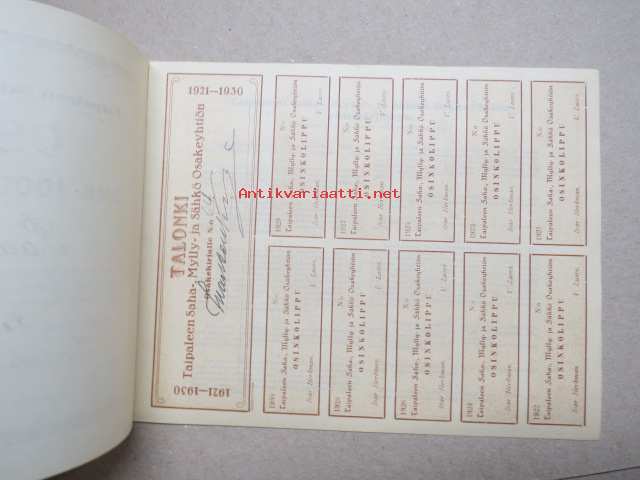 1921—1930
TALONKI
Taipaleen Saha-, Mylly- ja Sähkö Osakeyhtiön
Osakekirjalle N:o
1921—1930
Antikvariaatti.net
1929
No
Taipaleen Saha-, Mylly- ja Sähkö Osakeyhtiön
OSINKOLIPPU
Ivar Nordman.
V. Lauren.
1927
No
Taipaleen Saha-, Mylly- ja Sähkö Osakeyhtiön
OSINKOLIPPU
Ivar Nordman.
V. Lauren.
No
Taipaleen Saha-, Mylly- ja Sähkö Osakeyhtiön
OSINKOLIPPU
Ivar Nordman.
V. Lauren.
1923
No
Taipaleen Saha-, Mylly- ja Sähkö Osakeyhtiön
OSINKOLIPPU
Ivar Nordman.
V. Lauren.
1921
No
Taipaleen Saha-, Mylly- ja Sähkö Osakeyhtiön
OSINKOLIPPU
Ivar Nordman.
V. Lauren.
No
Taipaleen Saha-, Mylly- ja Sähkö Osakeyhtiön
OSINKOLIPPU
Ivar Nordman.
V. Lauren.
1928
No
Taipaleen Saha-, Mylly- ja Sähkö Osakeyhtiön
OSINKOLIPPU
Ivar Nordman.
V. Lauren.
1926
No
Taipaleen Saha-, Mylly- ja Sähkö Osakeyhtiön
OSINKOLIPPU
Ivar Nordman.
V. Lauren.
1924
No
Taipaleen Saha-, Mylly- ja Sähkö Osakeyhtiön
OSINKOLIPPU
Ivar Nordman.
V. Lauren.
1922
No
Taipaleen Saha-, Mylly- ja Sähkö Osakeyhtiön
OSINKOLIPPU
Ivar Nordman.
V. Lauren.